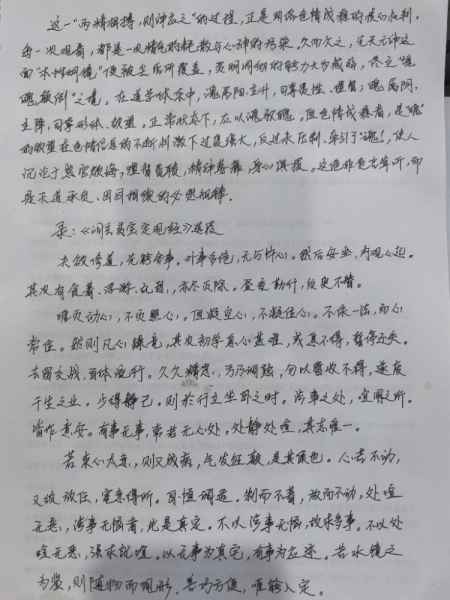 这一"两精相搏,则神去之"的过程,正是网络色情成瘾的核心机制,
每一次观看,都是一次精气的耗散与心神的污染。久而久之,先天元神这
面"本性明镜"便被尘垢所覆盖,灵明洞彻的能力大为减弱,终至"魂
魄颠倒"之境。在道学体系中,魂属阳,主升,司掌灵性、理智;魄属阴,
主降,司掌形体、欲望。正常状态下,应以魂驭魄。但色情成瘾者,是"魄"
的欲望在色情信息的不断刺激下过度强大,反过来压制、牵引了"魂",使人
沉沦于感官欲海,理智昏聩,精神萎靡,身心俱疲。这绝非危言耸听,而
是天道承负、因因相续的必然规律。
录:《洞玄灵宝定观经》选段
夫欲修道,先能舍事。外事都绝,无与忤心。然后安坐,内观心起。
其次有贪著、浮游、乱想,亦尽灭除。昼夜勤行,须臾不替。
唯灭动心,不灭照心。但凝空心,不凝住心。不依一法,而心
常住。然则凡心躁竞,其次初学息心甚难,或息不得,暂停还失。
去留交战,百体流行。久久精思,方乃调熟,勿以暂收不得,遂废
千生之业。少得静已,则于行立坐卧之时,涉事之处,喧闹之所,
皆作意安。有事无事,常若无心,处静处喧,其志唯一。
若束心太急,则又成病,气发狂颠,是其候也。心若不动,
又放放任,宽急得所。自恒调适,制而不著,放而不动,处喧
无恶,涉事无恼者,此是真定。不以涉事无恼,故求多事。不以处
喧无恶,强来就喧。以无事为真宅,有事为应迹。若水镜之
为鉴,则随物而现形。善巧方便,唯能入定。